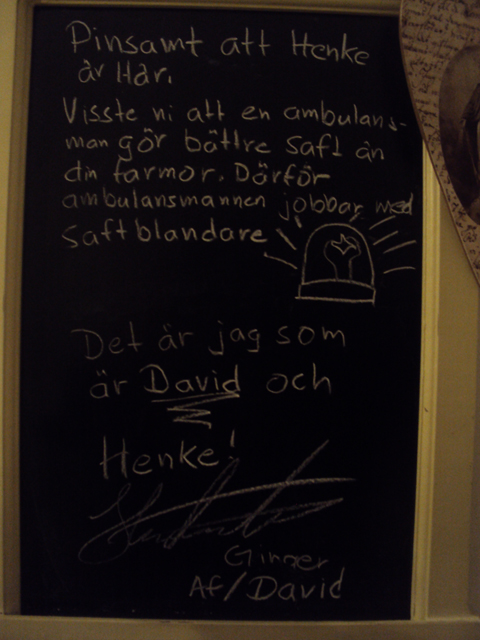 Pinsamt att Henke
är Här.
Visste ni att en ambulans-
man gör bättre saft än
din farmor. Därför
ambulansmannen jobbar med
saftblandare
Det är jag som
är David och
Henke!
Ginger
Af/David